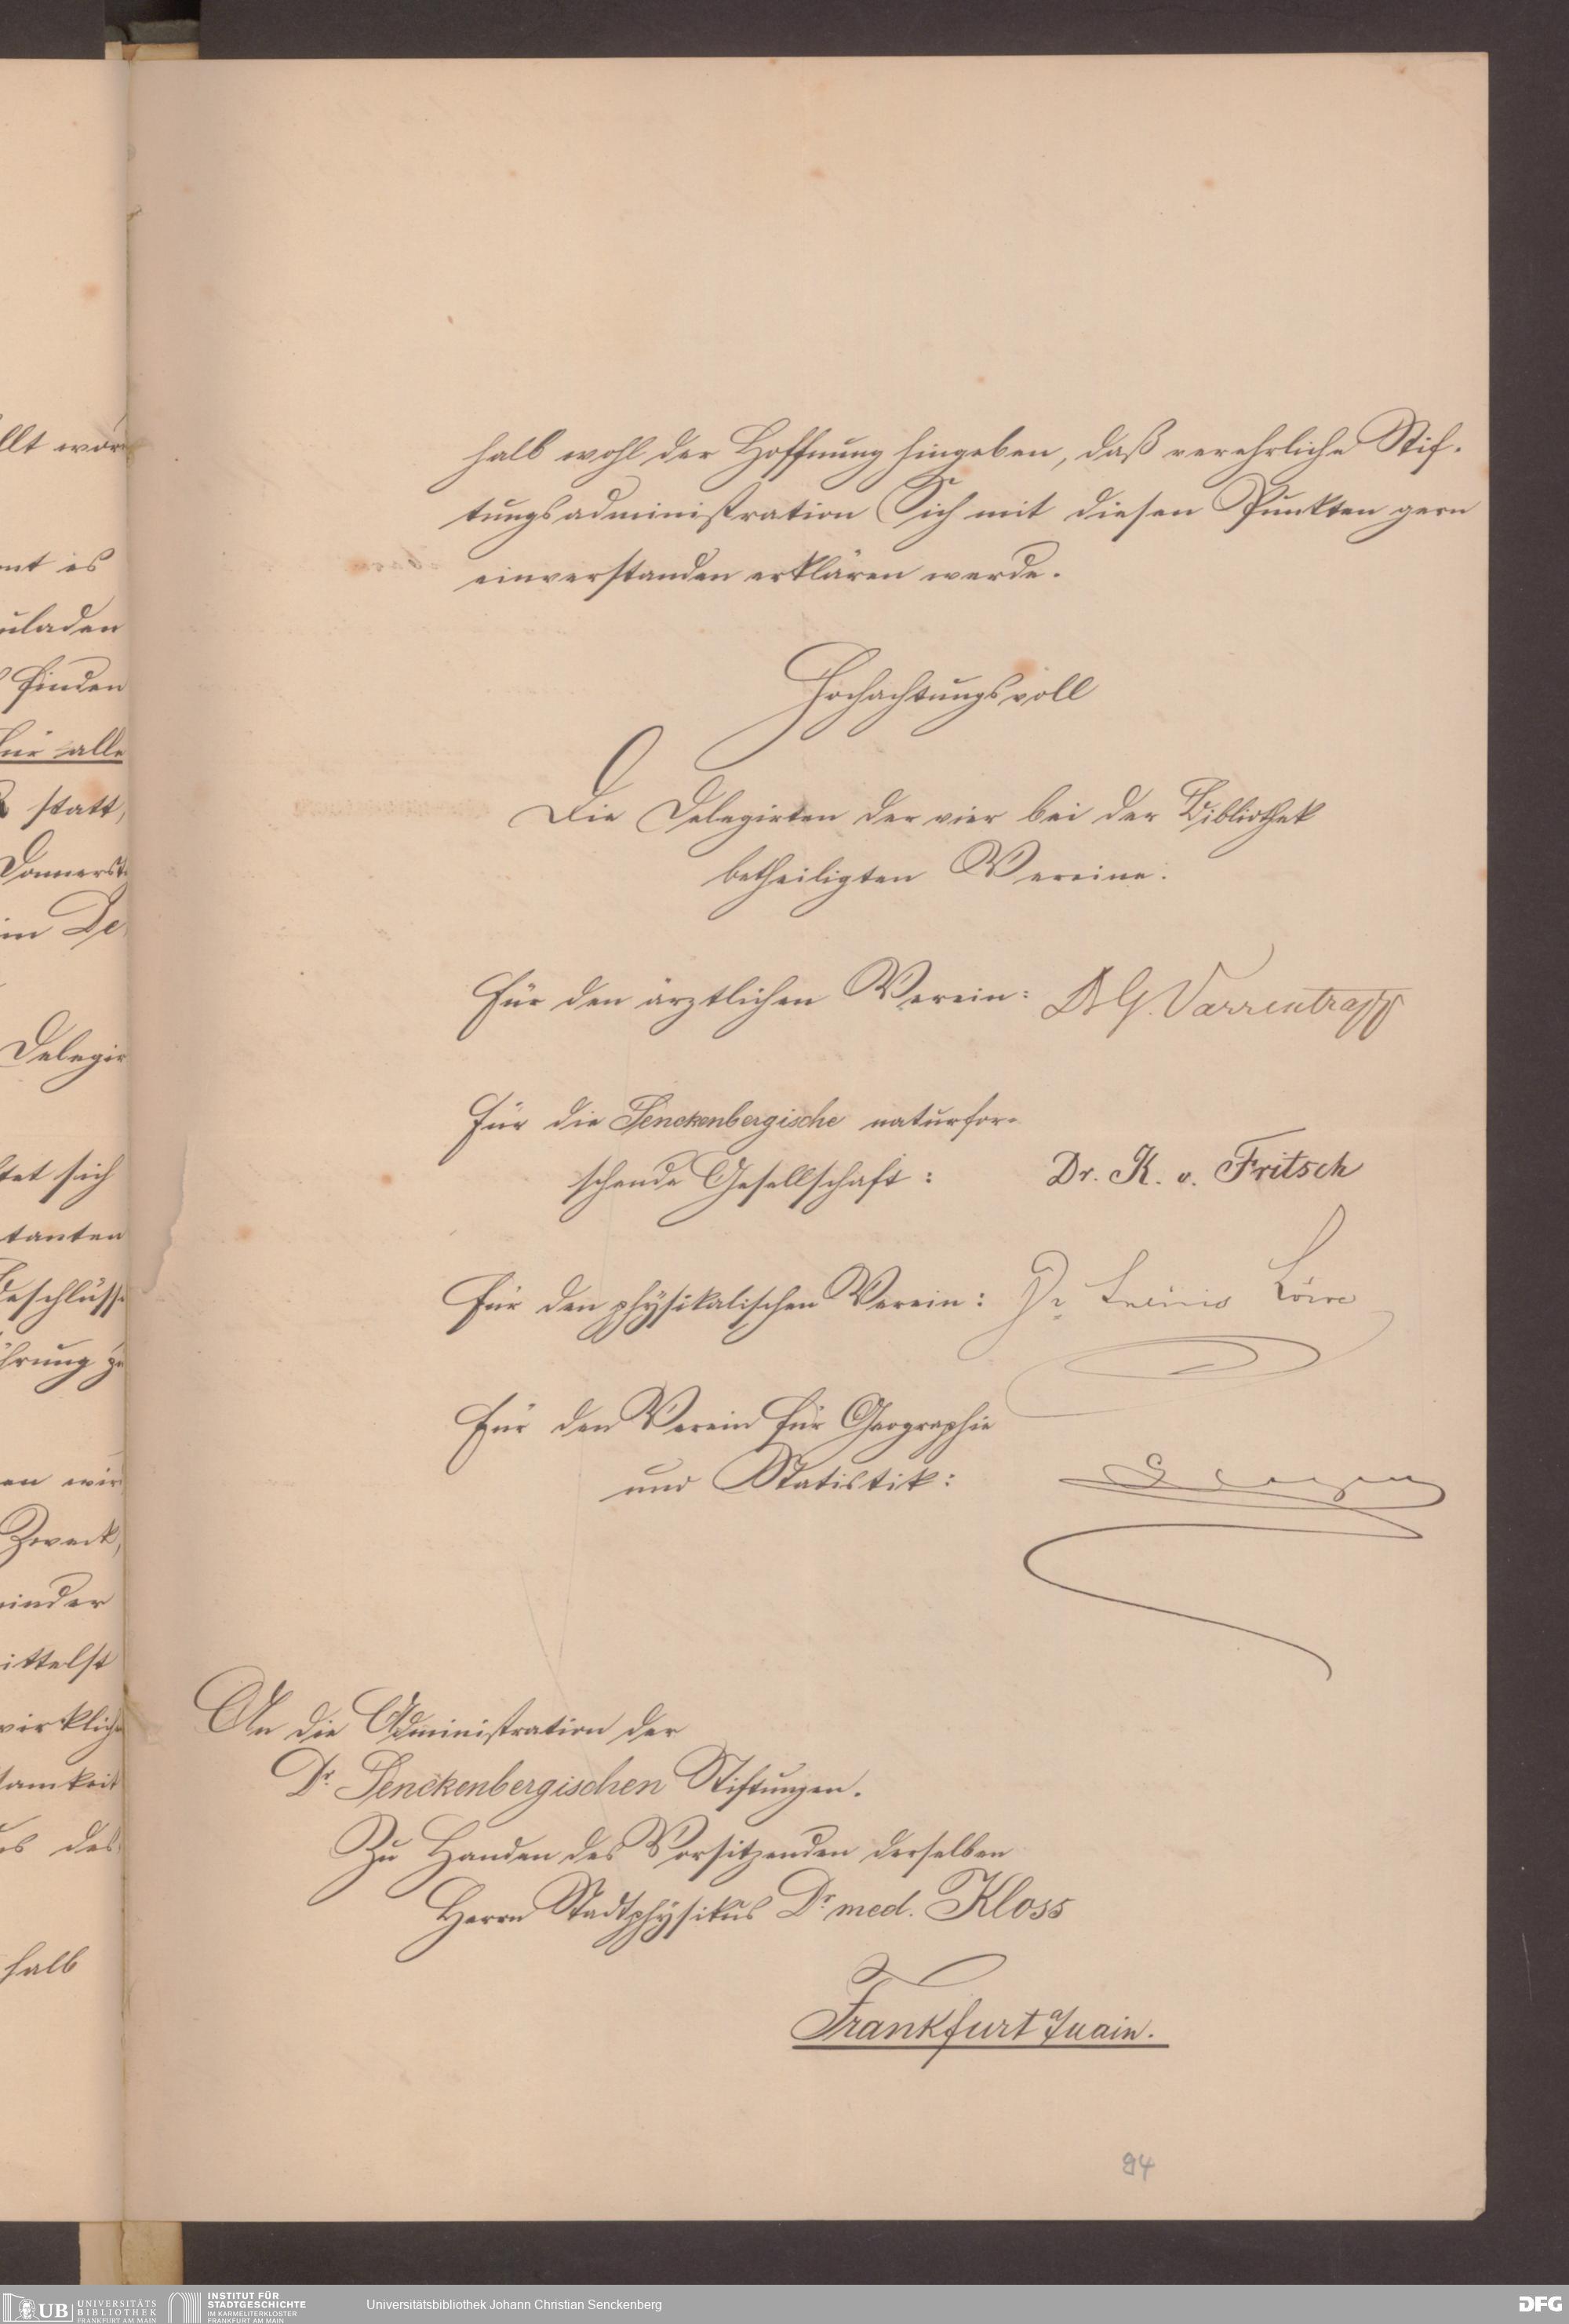 llt wor
nt es
uladen
finden
für alle
statt,
Donnerst
im Se
Delegir
tet sich
tanten
Beschlüss
hrung zu
en wir
Zweck,
minder
mittelst
wirklich
samkeit
us des
halb
halb wohl der Hoffnung hingeben, daß verehrliche Stif-
tungsadministration Sich mit diesen Punkten gern
einverstanden erklären werde.
Hochachtungsvoll
Die Delegirten der vier bei der Bibliothek
betheiligten Vereine.
Für den ärztlichen Verein: Dr G. Varrentrapp
Für die Senckenbergische naturfor-
schende Gesellschaft: Dr. K. v. Fritsch
Für den physikalischen Verein: Dr Löwe
Für den Verein für Geographie
und Statistik:
An die Administration der
Dr. Senckenbergischen Stiftungen.
Zu Handen des Vorsitzenden derselben
Herrn Stadtphysikus Dr. med. Kloss
Frankfurt a/Main.
94
UB UNIVERSITÄTS
BIBLIOTHEK
FRANKFURT AM MAIN
INSTITUT FÜR
STADTGESCHICHTE
IM KARMELITERKLOSTER
FRANKFURT AM MAIN
Universitätsbibliothek Johann Christian Senckenberg
DFG